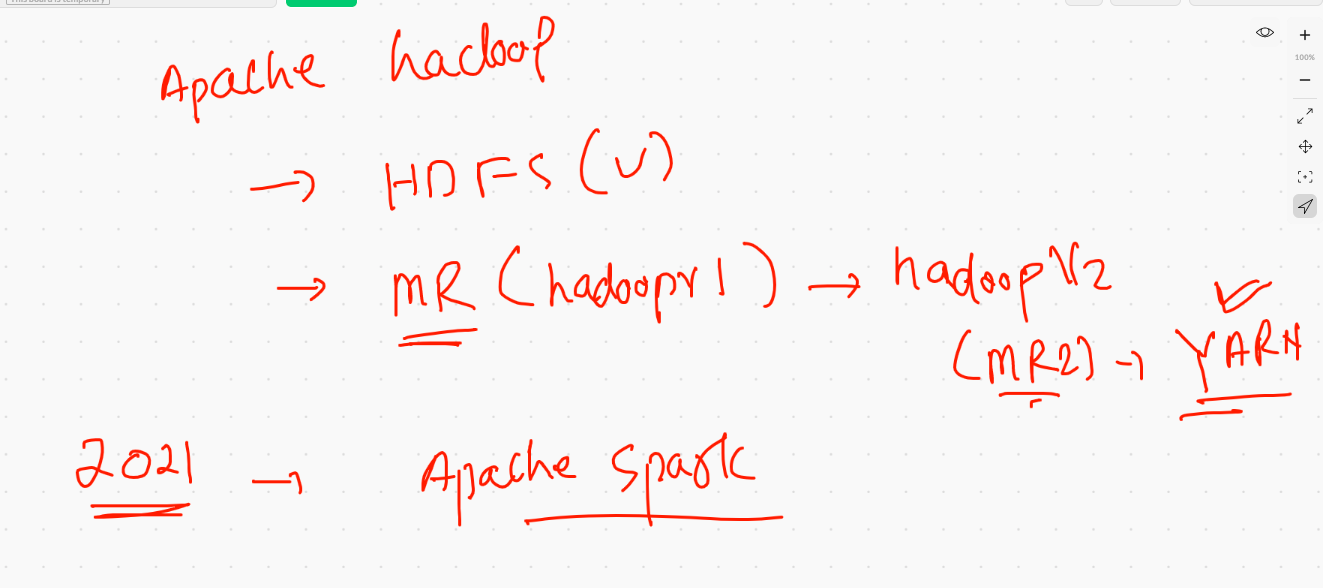 This board is temporary
100%
Apache hadoop
→ HDFS (U)
→ MR (hadoopv1) → hadoop V2
(MR2) → YARN
2021 → Apache Spark